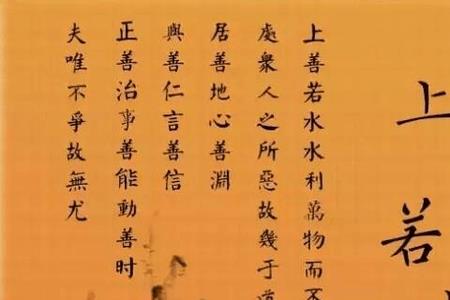 上若
上善若水水利萬物而不
處衆人之所惡故幾于道
居善地心善淵
與善仁言善信
正善治事善能動善时
夫唯不爭故無尤